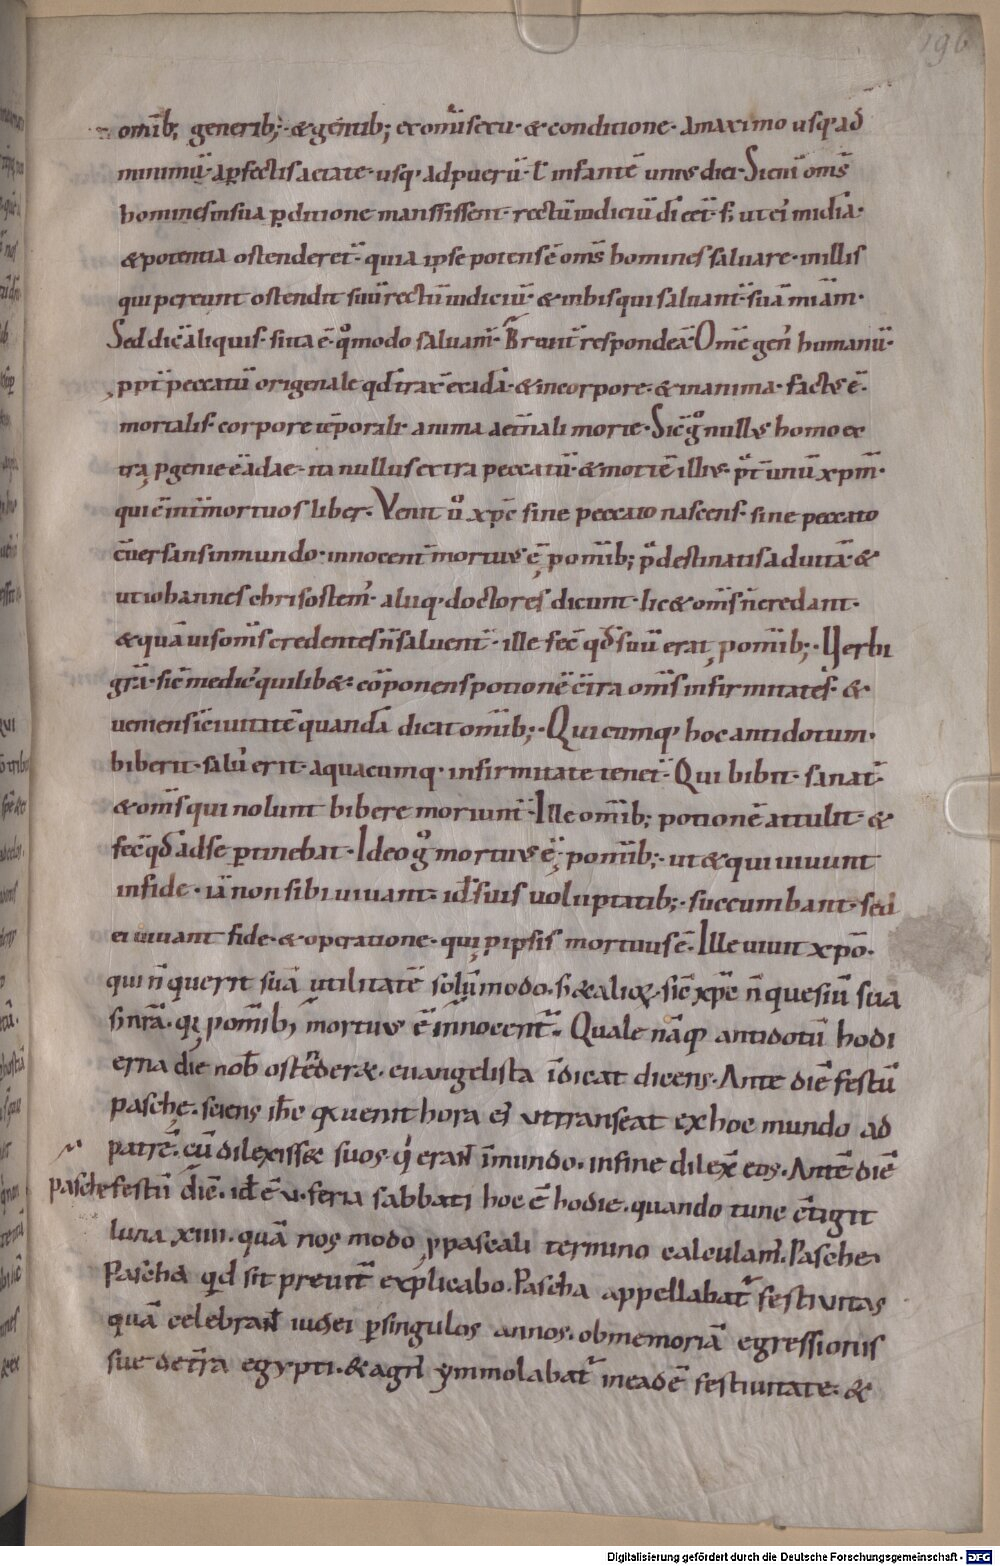 196
omīb; generib; & gentib; ex omī sexu · & conditione · A maximo usq ad
minimū · a pfectis aetate · usq ad puerū · ł infantē unius diei · Sicut om̄s
homines in sua pditione mansissent · rectū iudiciū dī eēt · s; ut ei mīdia ·
& potentia ostenderet · quia ipse potens ē om̄s homines saluare · in illis
qui pereunt ostendit suū rectū iudiciū · & in his qui saluant suā miām ·
Sed dic aliquis · si ita ē · qmodo saluam · Breuit respondeā · Om̄e gen humanū ·
ppt peccatū origenale qd trax ex adā · & in corpore · & in anima · factus ē ·
mortalis · corpore tēporali · anima aetnali morte · Sic g nullus homo ex
tra pgenie ē adae · ita nullus extra peccatū · & mortē illius · pt unū xpm ·
qui ē int mortuos liber · Venit ū xpc sine peccato nascens · sine peccato
cuersans in mundo · innocent mortuus ē p omīb; pdestinatis ad uitā · &
ut iohannes chrisostem · aliiq doctores dicunt · lic & om̄s n̄ credant ·
& quāuis om̄s credentes n̄ saluent · ille fec qd suū erat p omīb; · Uerbi
grā · sic medic quilib& cōponens potionē cīra om̄s infirmitates · &
ueniens i ciuitatē quandā dicat omīb; · Quicumq hoc antidotum ·
biberit · salu erit · a quacumq infirmitate tenet · Qui bibit · sanat ·
& om̄s qui nolunt bibere moriunt · Ille omīb; potionē attulit · &
fec qd ad se ptinebat · Ideo g mortuus ē p omīb; · ut & qui uiuunt
in fide · iā non sibi uiuant · id suis uoluptatib; · succumbant · sed
ei uiuant fide · & operatione · qui p ipsis mortuus ē · Ille uiuit xpo ·
qui n̄ querit suā utilitatē solūmodo · s; & alioꝝ · sic xpc n̄ quesiuit sua
s; nr̄a · qi p omīb; mortuus ē innocent · Quale nāq antidotū hodi
erna die nob ostēder& · euangelista īdicat dicens · Ante diē festū
pasche · sciens ihc qa uenit hora ei ut transeat ex hoc mundo ad
patrē · cū dilexiss& suos · qi eraN īmundo · in fine dilex eos · Ante diē
pasche festū diē · id ē · u · feria sabbati hoc ē hodie · quando tunc ctigit
luna xiiii · quā nos modo p pascali termino calculam · Pasche ·
Pascha qd sit breuit explicabo · Pascha appellabat festiuitas
quā celebraN iudei psingulos annos · ob memoriā egressionis
sue de tra egypti · & agn ymmolabat in eadē festiuitate · &
Digitalisierung gefördert durch die Deutsche Forschungsgemeinschaft - DFG